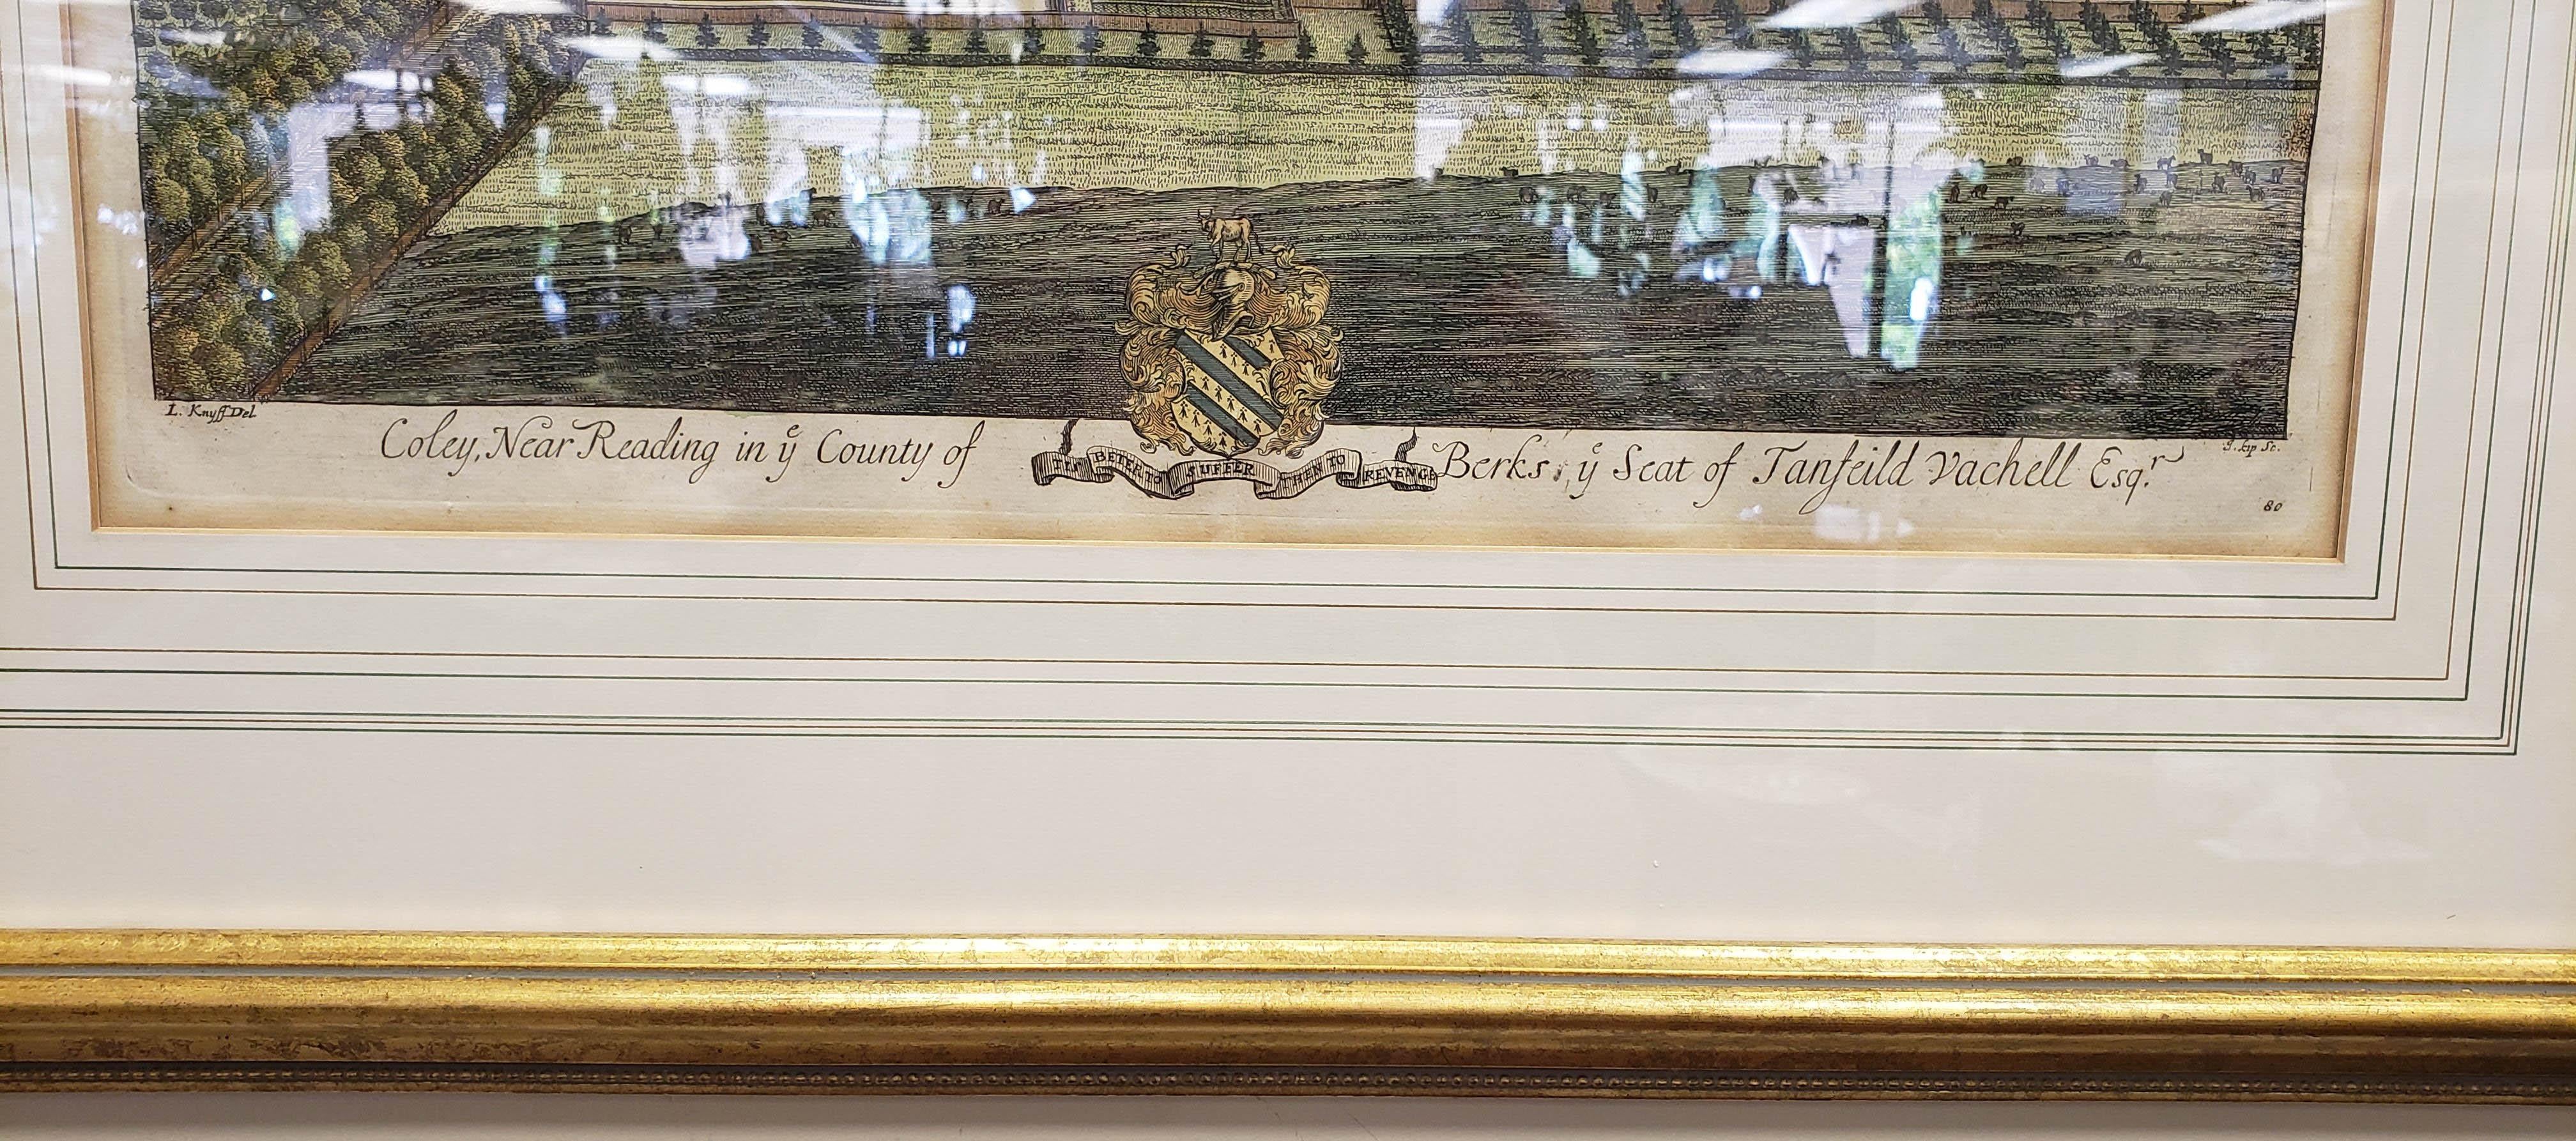 L. Knyff Del.
J. Kip Sc.
Coley, Near Reading in yͤ County of Berks: yͤ Seat of Tanfeild Vachell Esqʳ.
TIS BETER TO SUFFER THEN TO REVENGE
80